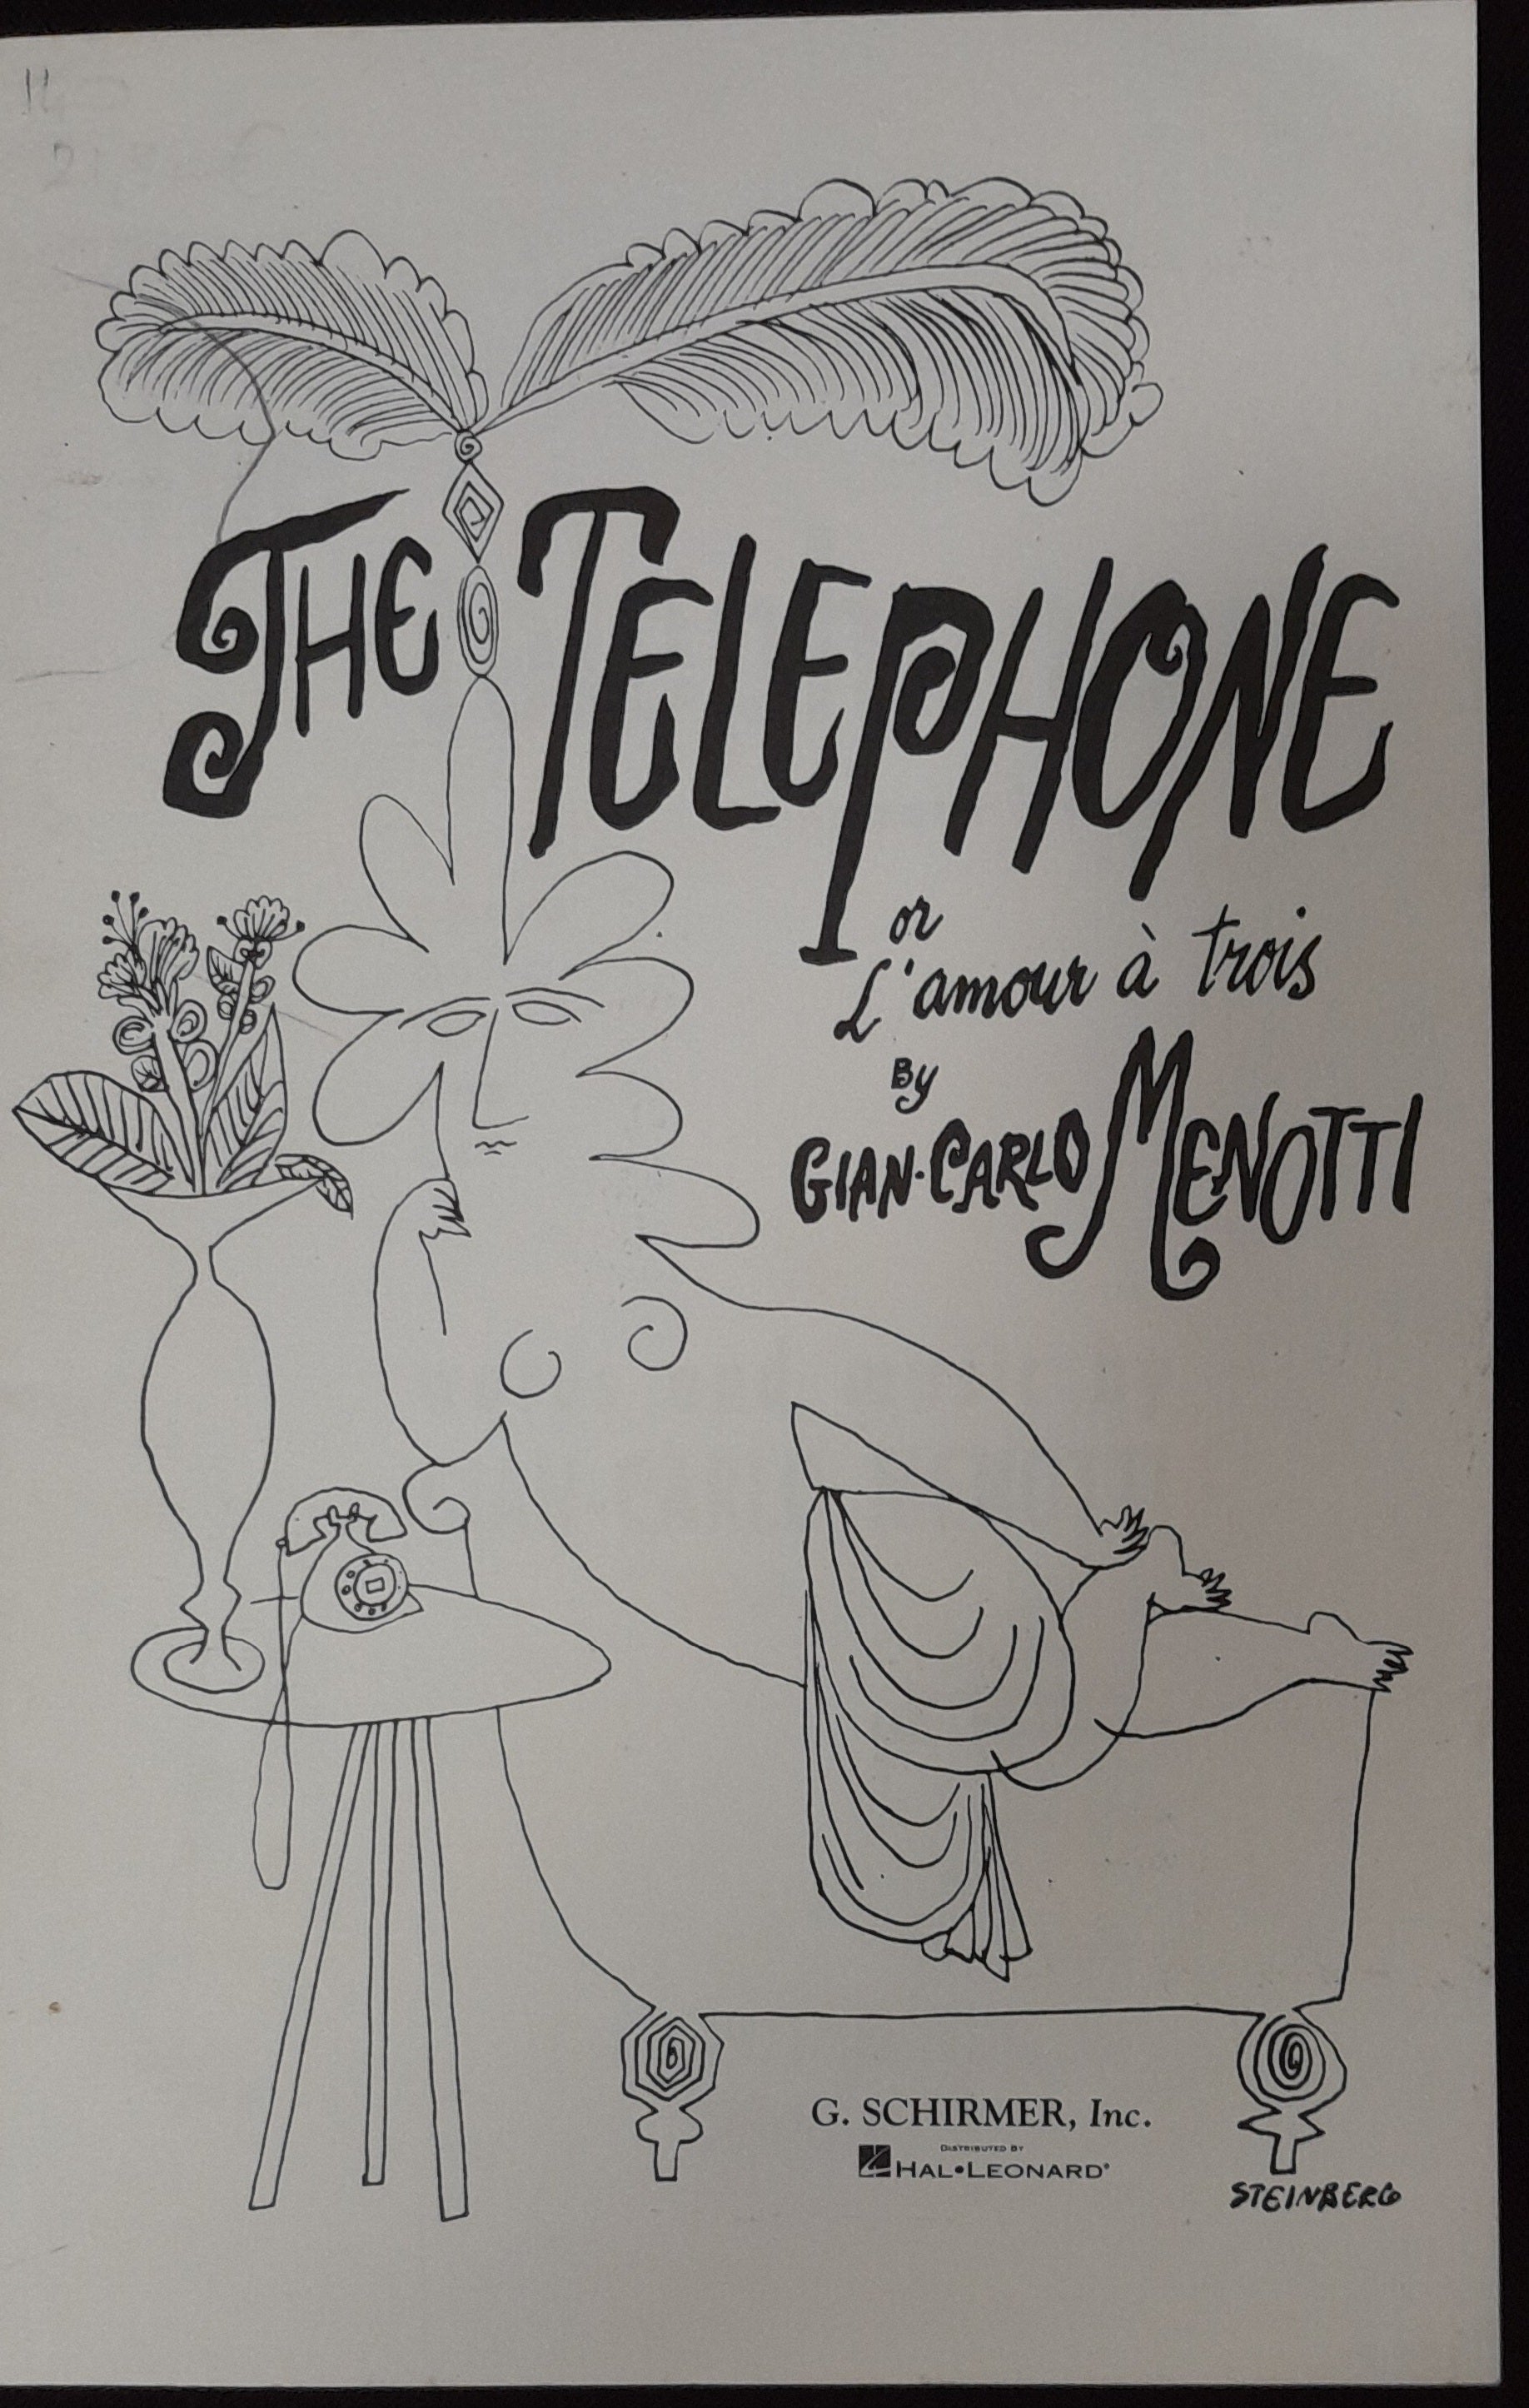 THE TELEPHONE
or
L'amour à trois
By
GIAN-CARLO MENOTTI
G. SCHIRMER, Inc.
DISTRIBUTED BY
HAL•LEONARD®
STEINBERG